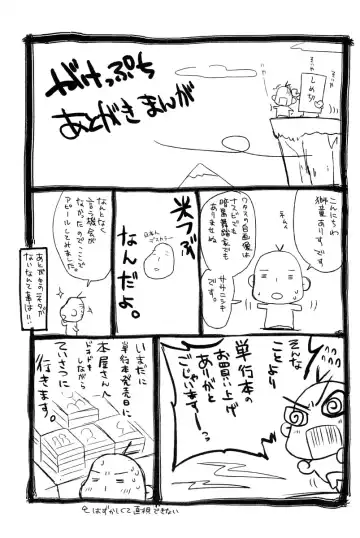 がけっぷち
あとがきまんが
しめきり
こんにちわ
獅童ありす。です。
ワタスの自画像は
ナスビでも
暗黒舞踏家でも
ありませぬ
ササニシキ
です。
米つぶ
なんだよ。
日本人
デストラー
なんとなく
言う機会が
なかったのでここで
アピールしてみました。
あとがきのネタが
ないなんて事は!!
そんな
ことより
単行本の
お買い上げ
ありがと
ございますーっっ
いまだに
単行本発売日に
本屋さんへ
ドキドキしながら
ていさつに
行きます。
はずかしくて直視できない